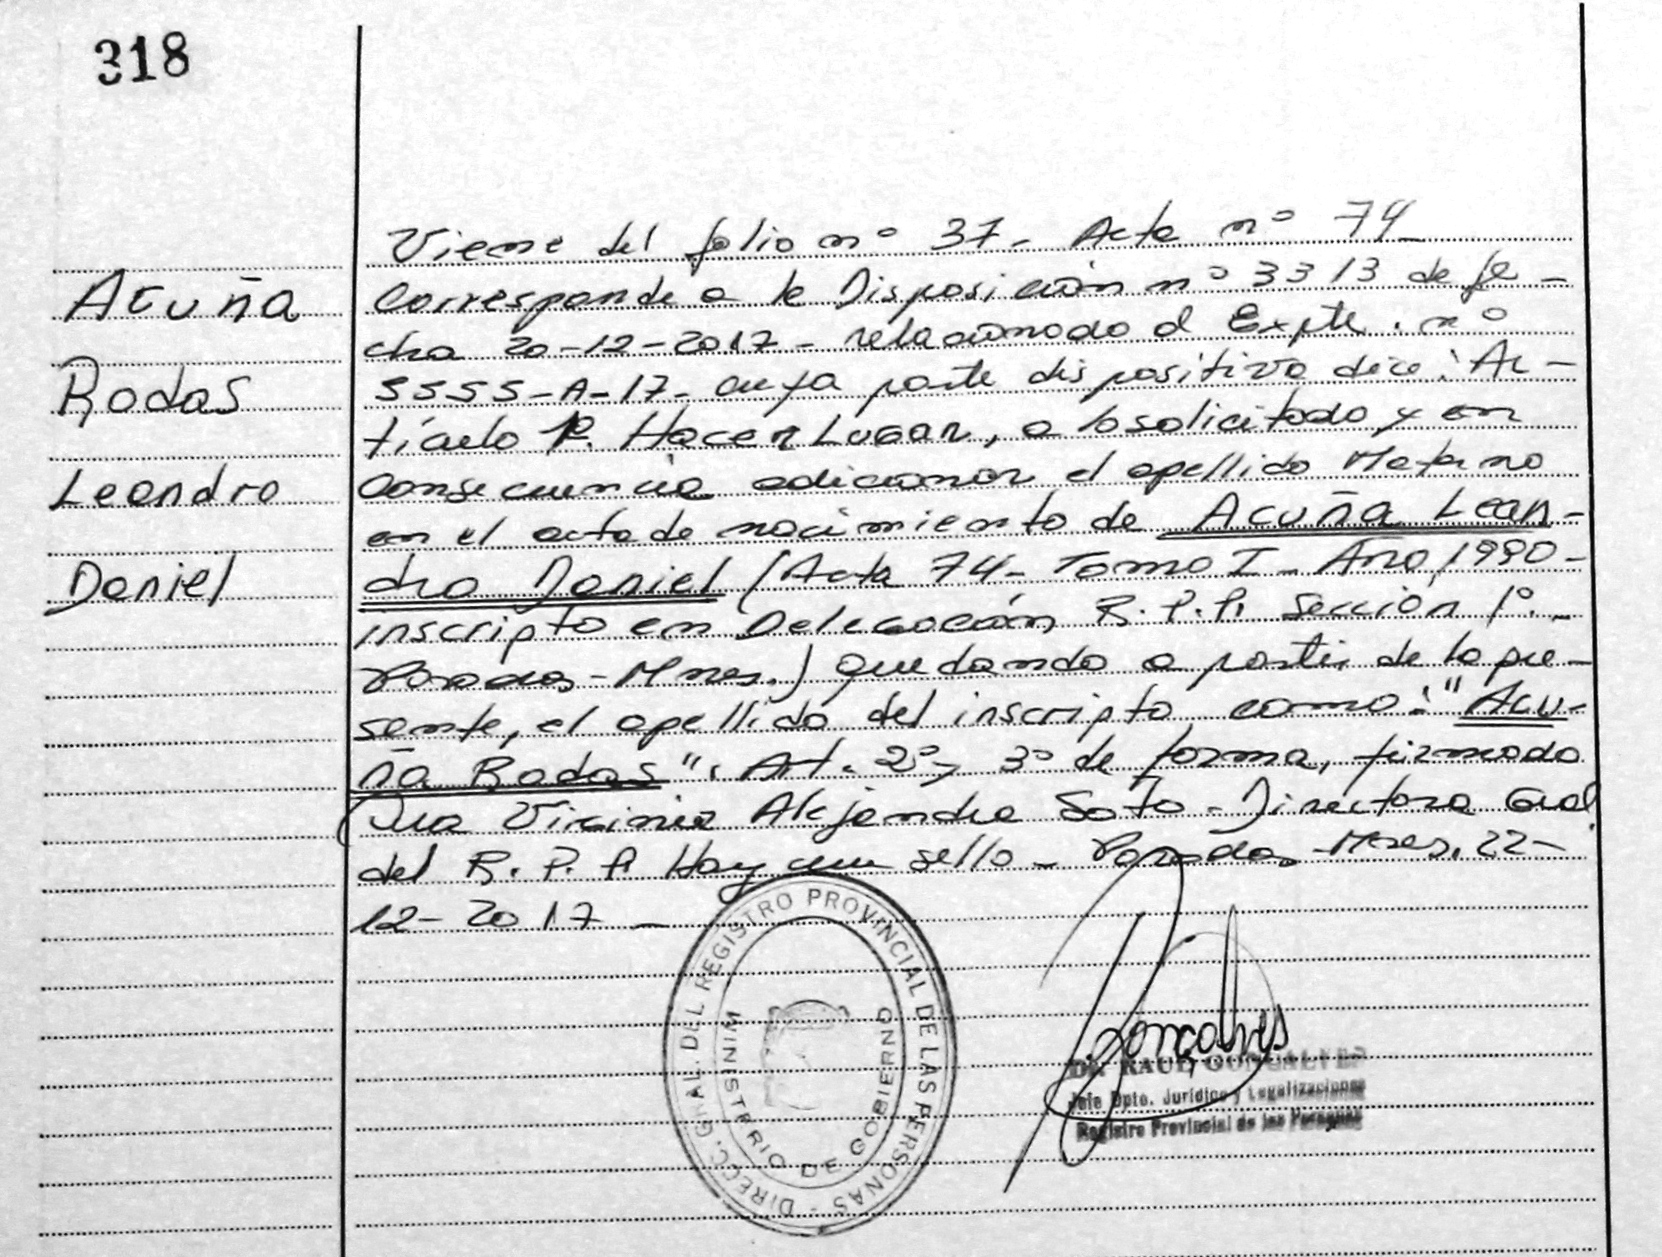 318
Acuña
Rodas
Leandro
Daniel
Viene del folio nº 37- Acta nº 74-
Corresponde a la Disposición nº 3313 de fe-
cha 20-12-2017- relacionado al Expte. nº
5555-A-17- cuya parte dispositiva dice: Ar-
tículo 1º. Hacer Lugar, a lo solicitado y en
consecuencia adicionar el apellido Materno
en el acta de nacimiento de Acuña Lean-
dro Daniel (Acta 74- Tomo I- Año 1990-
inscripto en Delegación R.P.P. Sección 1º-
Posadas-Mnes.) quedando a partir de la pre-
sente, el apellido del inscripto como: "Acu-
ña Rodas". Art. 2º y 3º de forma, firmado
Dra Virginia Alejandra Soto- Directora Gral
del R.P.P. Hay un sello- Posadas Mnes. 22-
12-2017-
DIRECC. GRAL. DEL REGISTRO PROVINCIAL DE LAS PERSONAS -
MINISTERIO DE GOBIERNO
Gonçalves
Dr. RAUL GONCALVES
Jefe Dpto. Jurídico y Legalizaciones
Registro Provincial de las Personas